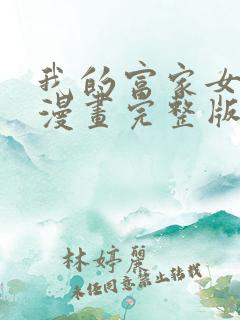 我的富家女
漫畫完整版
林婷麗
未經同意禁止轉載